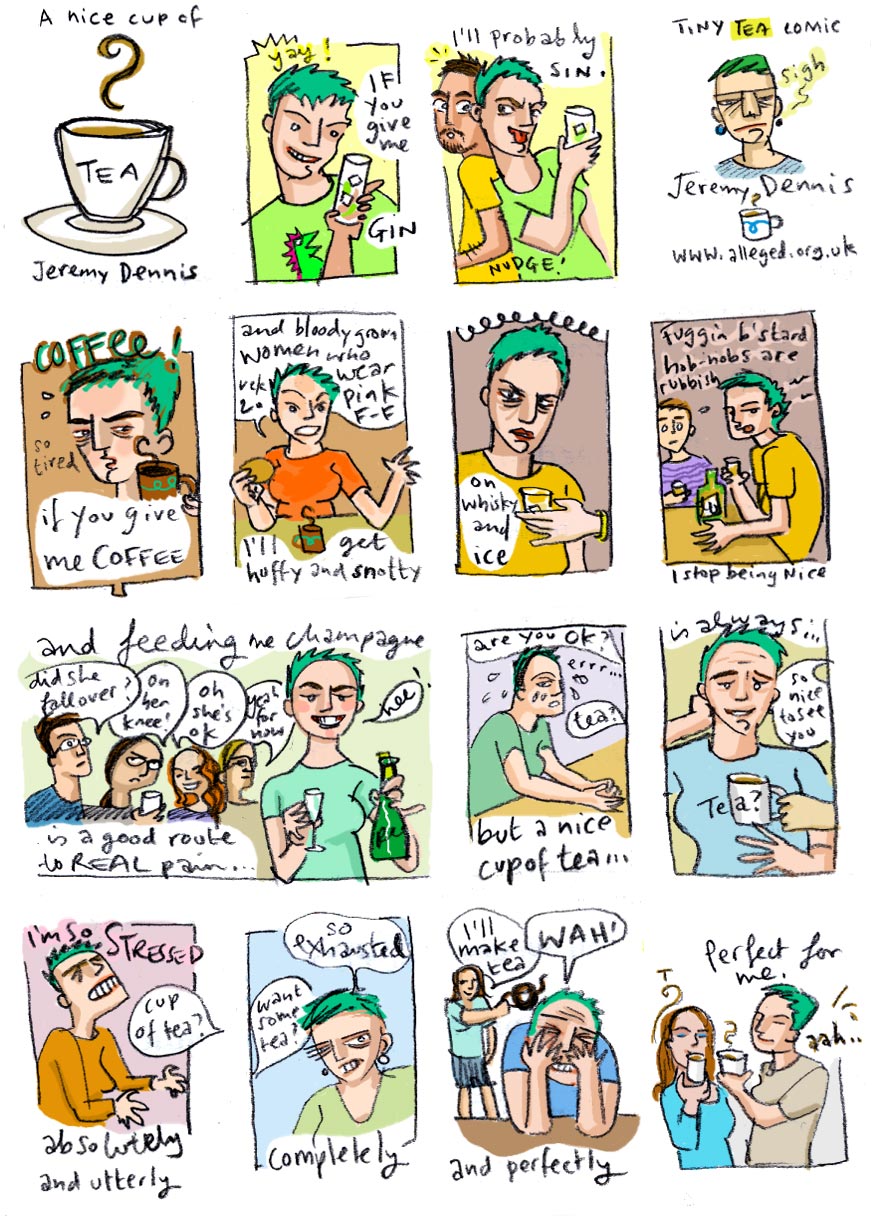 A nice cup of
TEA
Jeremy Dennis
yay!
IF
you
give
me
GIN
I'll probably
SIN.
NUDGE!
TINY TEA COMIC
sigh
Jeremy Dennis
www.alleged.org.uk
COFFEE!
so
tired
if you give
me COFFEE
and bloody grown
women who
wear
pink
F-F
I'll get
huffy and snotty
on
whisky
and
ice
Fuggin b'stard
hob-nobs are
rubbish
I stop being Nice
and feeding me champagne
did she
fall over?
on
her
knee!
oh
she's
ok
yeah
for
now
hee!
is a good route
to REAL pain...
are you OK?
errr...
tea?
but a nice
cup of tea...
is always...
so
nice
to see
you
Tea?
I'm so STRESSED
cup
of tea?
absolutely
and utterly
so
exhausted
want
some
tea?
completely
I'll
make
tea
WAH!
and perfectly
Perfect for
me.
aah..